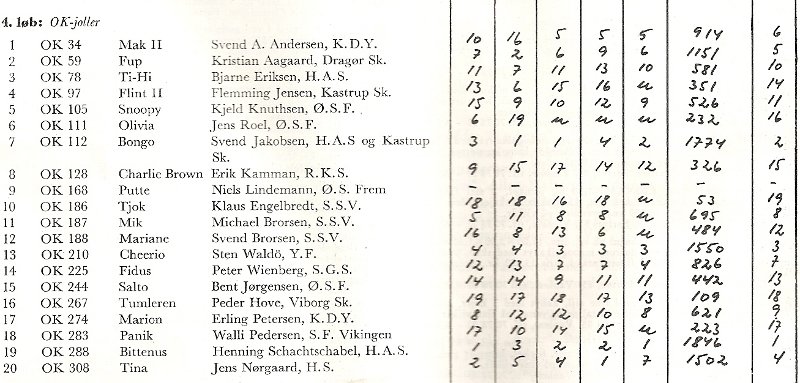 4. løb: OK-joller
1 OK 34 Mak II Svend A. Andersen, K.D.Y. 10 16 5 5 5 914 6
2 OK 59 Fup Kristian Aagaard, Dragør Sk. 7 2 6 9 6 1151 5
3 OK 78 Ti-Hi Bjarne Eriksen, H.A.S. 11 7 11 13 10 581 10
4 OK 97 Flint II Flemming Jensen, Kastrup Sk. 13 6 15 16 u 351 14
5 OK 105 Snoopy Kjeld Knuthsen, Ø.S.F. 15 9 10 12 9 526 11
6 OK 111 Olivia Jens Roel, Ø.S.F. 6 19 u u u 232 16
7 OK 112 Bongo Svend Jakobsen, H.A.S og Kastrup 3 1 1 4 2 1774 2
Sk.
8 OK 128 Charlie Brown Erik Kamman, R.K.S. 9 15 17 14 12 326 15
9 OK 168 Putte Niels Lindemann, Ø.S. Frem - - - - - - -
10 OK 186 Tjok Klaus Engelbredt, S.S.V. 18 18 16 18 u 53 19
11 OK 187 Mik Michael Brorsen, S.S.V. 5 11 8 8 u 695 8
12 OK 188 Mariane Svend Brorsen, S.S.V. 16 8 13 6 u 484 12
13 OK 210 Cheerio Sten Waldö, Y.F. 4 4 3 3 3 1550 3
14 OK 225 Fidus Peter Wienberg, S.G.S. 12 13 7 7 4 826 7
15 OK 244 Salto Bent Jørgensen, Ø.S.F. 14 14 9 11 11 442 13
16 OK 267 Tumleren Peder Hove, Viborg Sk. 19 17 18 17 13 109 18
17 OK 274 Marion Erling Petersen, K.D.Y. 8 12 12 10 8 621 9
18 OK 283 Panik Walli Pedersen, S.F. Vikingen 17 10 14 15 u 223 17
19 OK 288 Bittenus Henning Schachtschabel, H.A.S. 1 3 2 2 1 1846 1
20 OK 308 Tina Jens Nørgaard, H.S. 2 5 4 1 7 1502 4